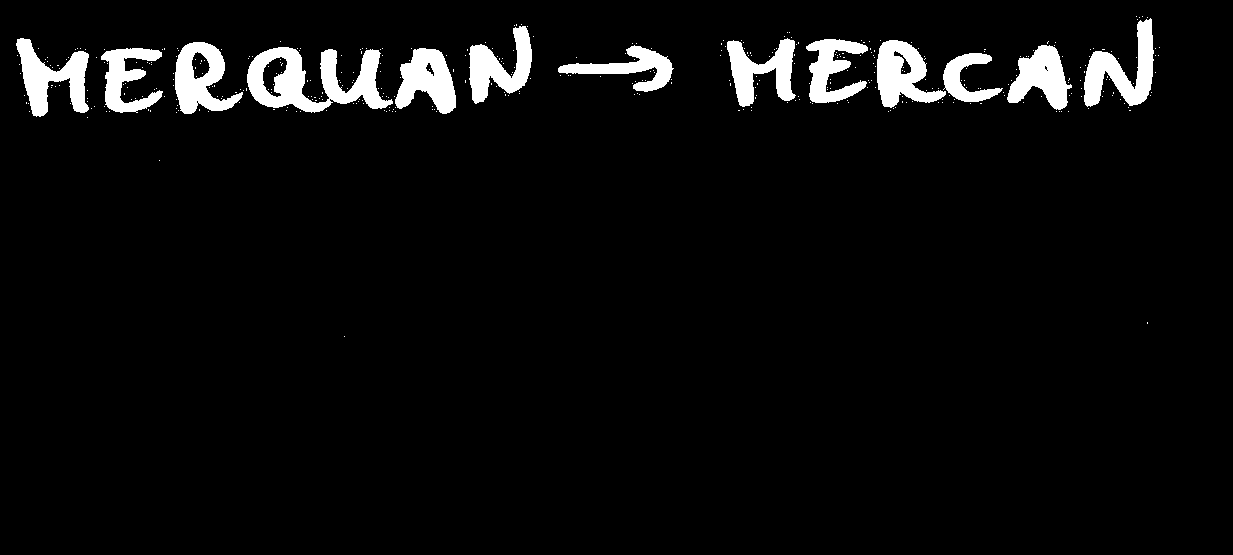 MERQUAN → MERCAN